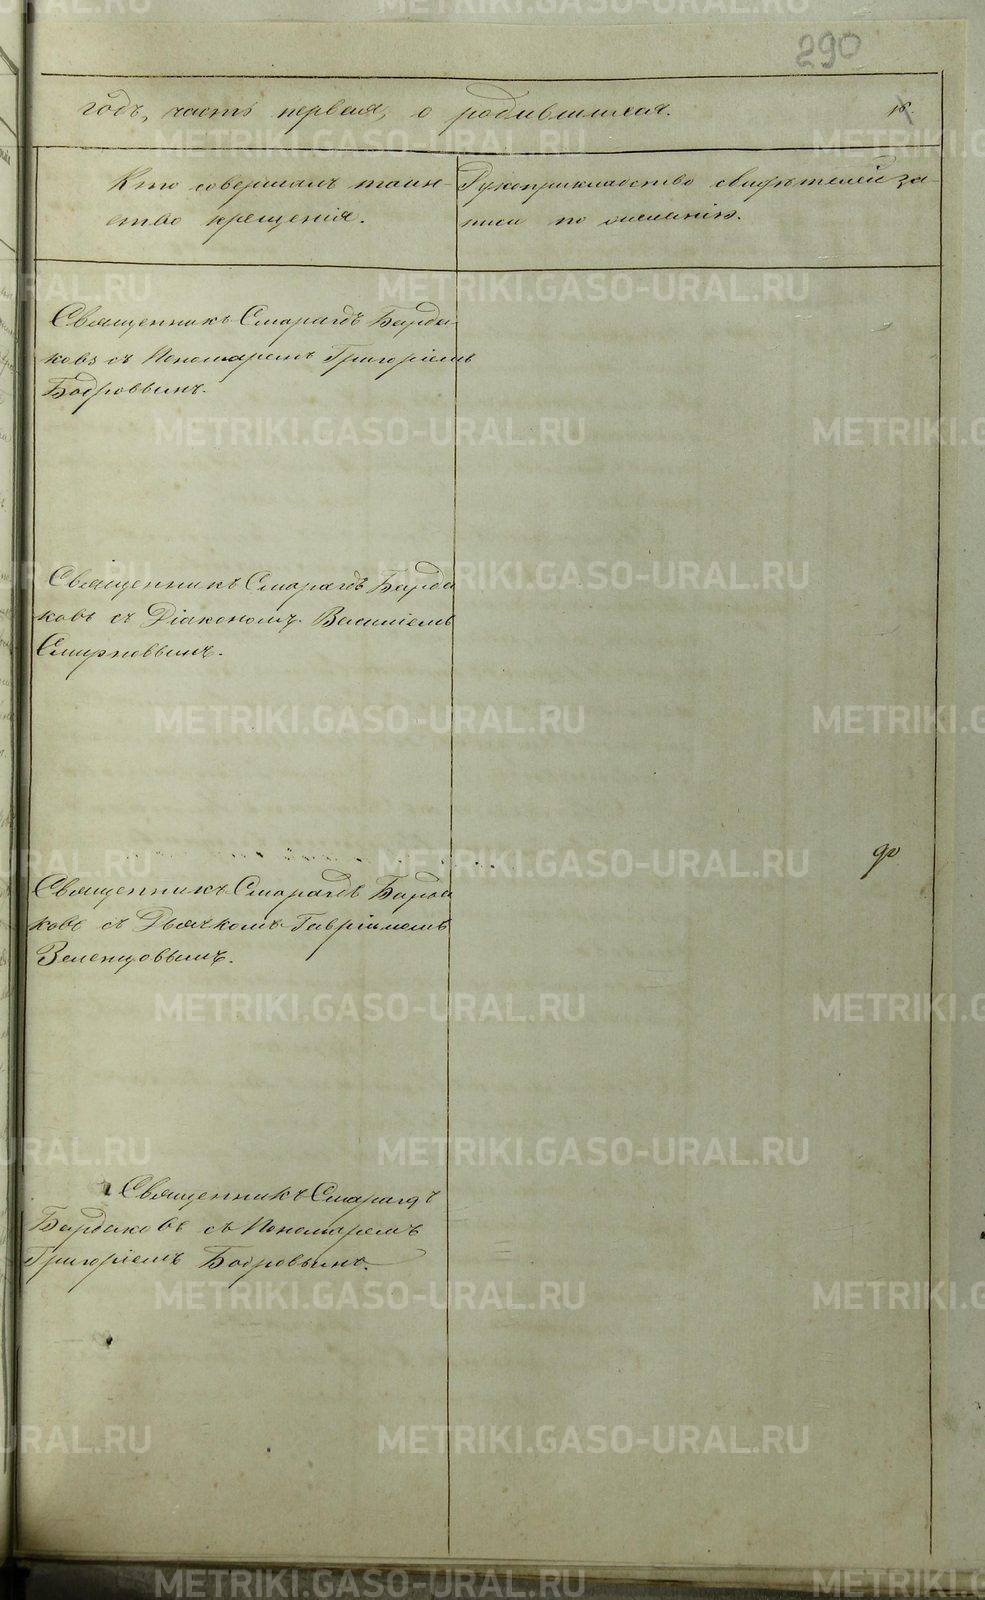 290
годъ, часть первая, о родившихся.
18.
Кто совершалъ таин-
ство крещенія.
Рукоприкладство свидѣтелей за-
писи по желанію.
Священникъ Смарагдъ Барда-
ковъ съ Пономаремъ Григоріемъ
Бобровымъ.
Священникъ Смарагдъ Барда
ковъ съ Діакономъ Василіемъ
Смирновымъ.
90
Священникъ Смарагдъ Барда
ковъ съ Дьячкомъ Гавріиломъ
Зеленцовымъ.
Священникъ Смарагдъ
Бардаковъ съ Пономаремъ
Григоріемъ Бобровымъ.
METRIKI.GASO-URAL.RU